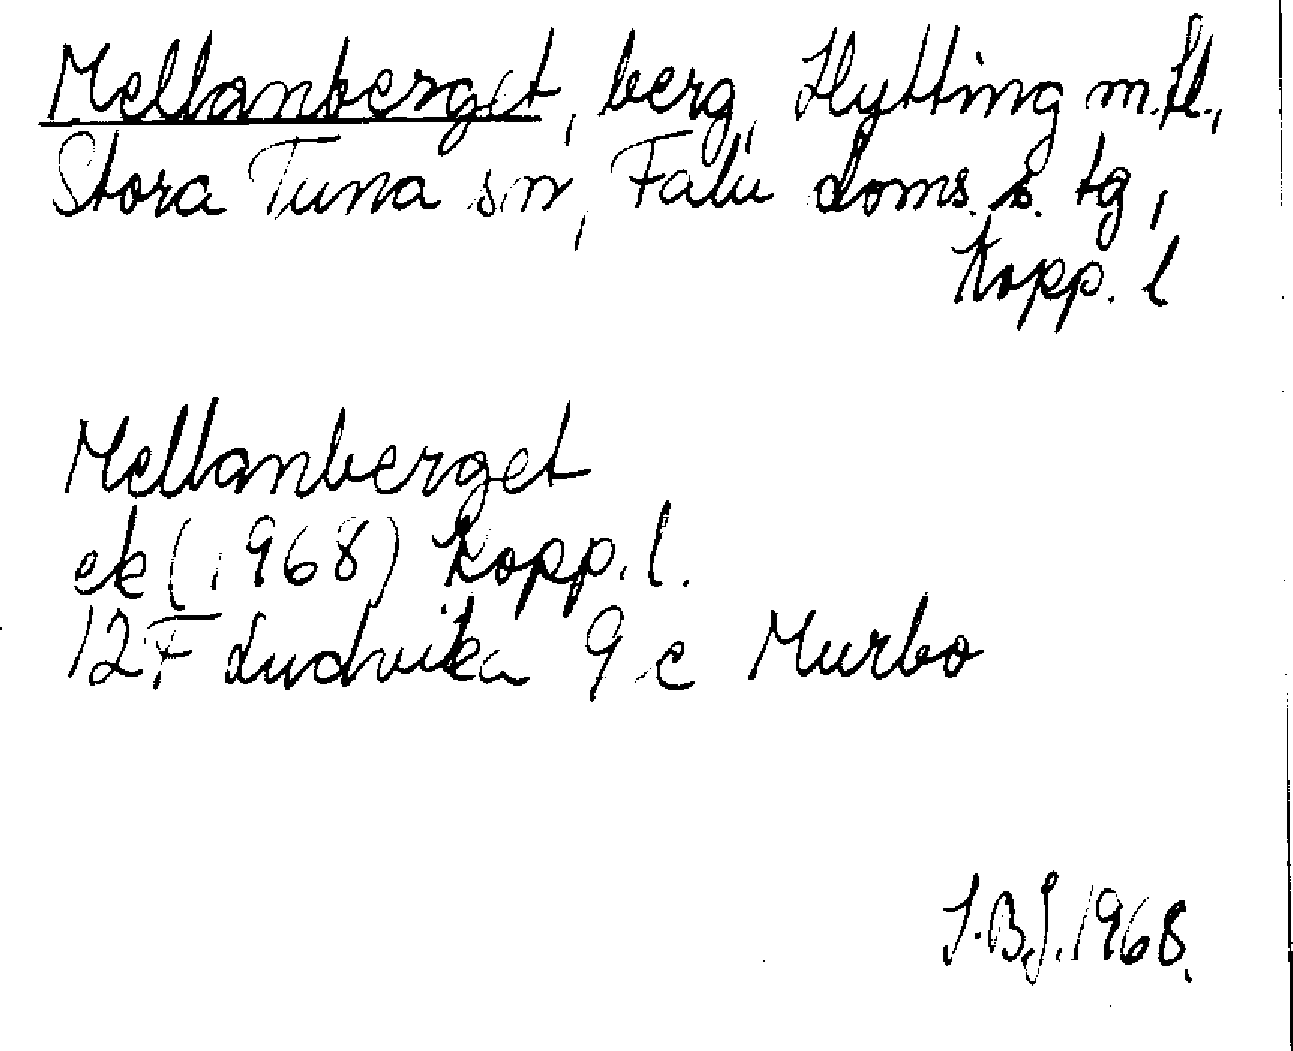 Mellanberget, berg, Hytting m.fl.,
Stora Tuna sn, Falu doms. s. tg,
Kopp. l
Mellanberget
ek (1968) Kopp. l.
12F Ludvika 9 c Murbo
I.B.J. 1968.